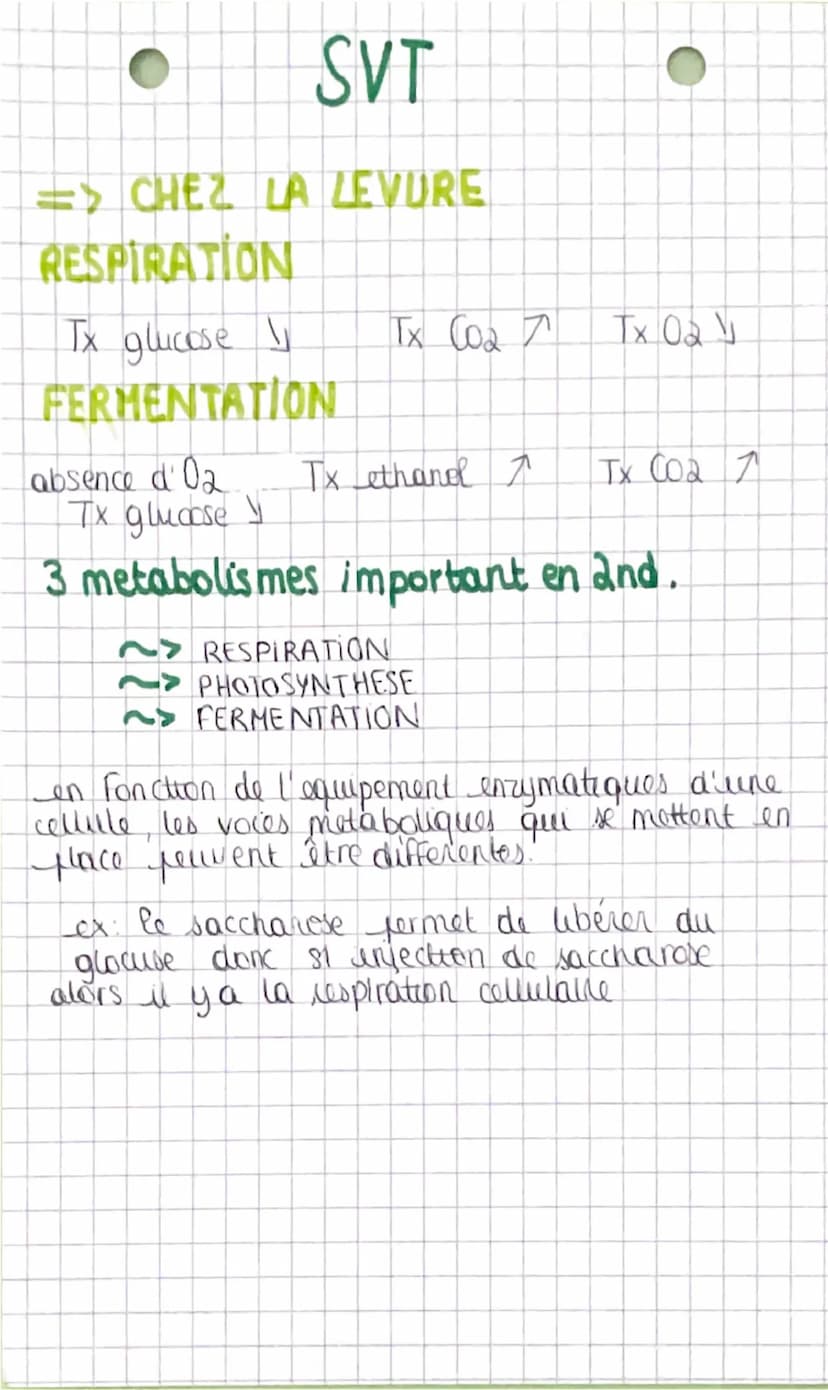 SVT
=> CHEZ LA LEVURE
RESPIRATION
Tx glucose ↘ Tx CO2 ↗ Tx O2 ↘
FERMENTATION
absence d'O2 Tx ethanol ↗ Tx CO2 ↗
Tx glucose ↘
3 metabolismes important en 2nd.
~> RESPIRATION
~> PHOTOSYNTHESE
~> FERMENTATION
en fonction de l'equipement enzymatiques d'une
cellule, les voies metaboliques qui se mettent en
place peuvent être differentes.
ex: le saccharose permet de libérer du
glocuse donc si injection de saccharose
alors il y a la respiration cellulaire